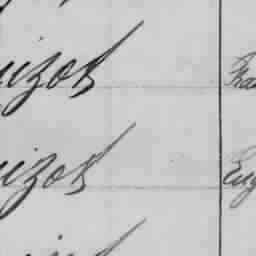 uizot Fra
uizot Eug